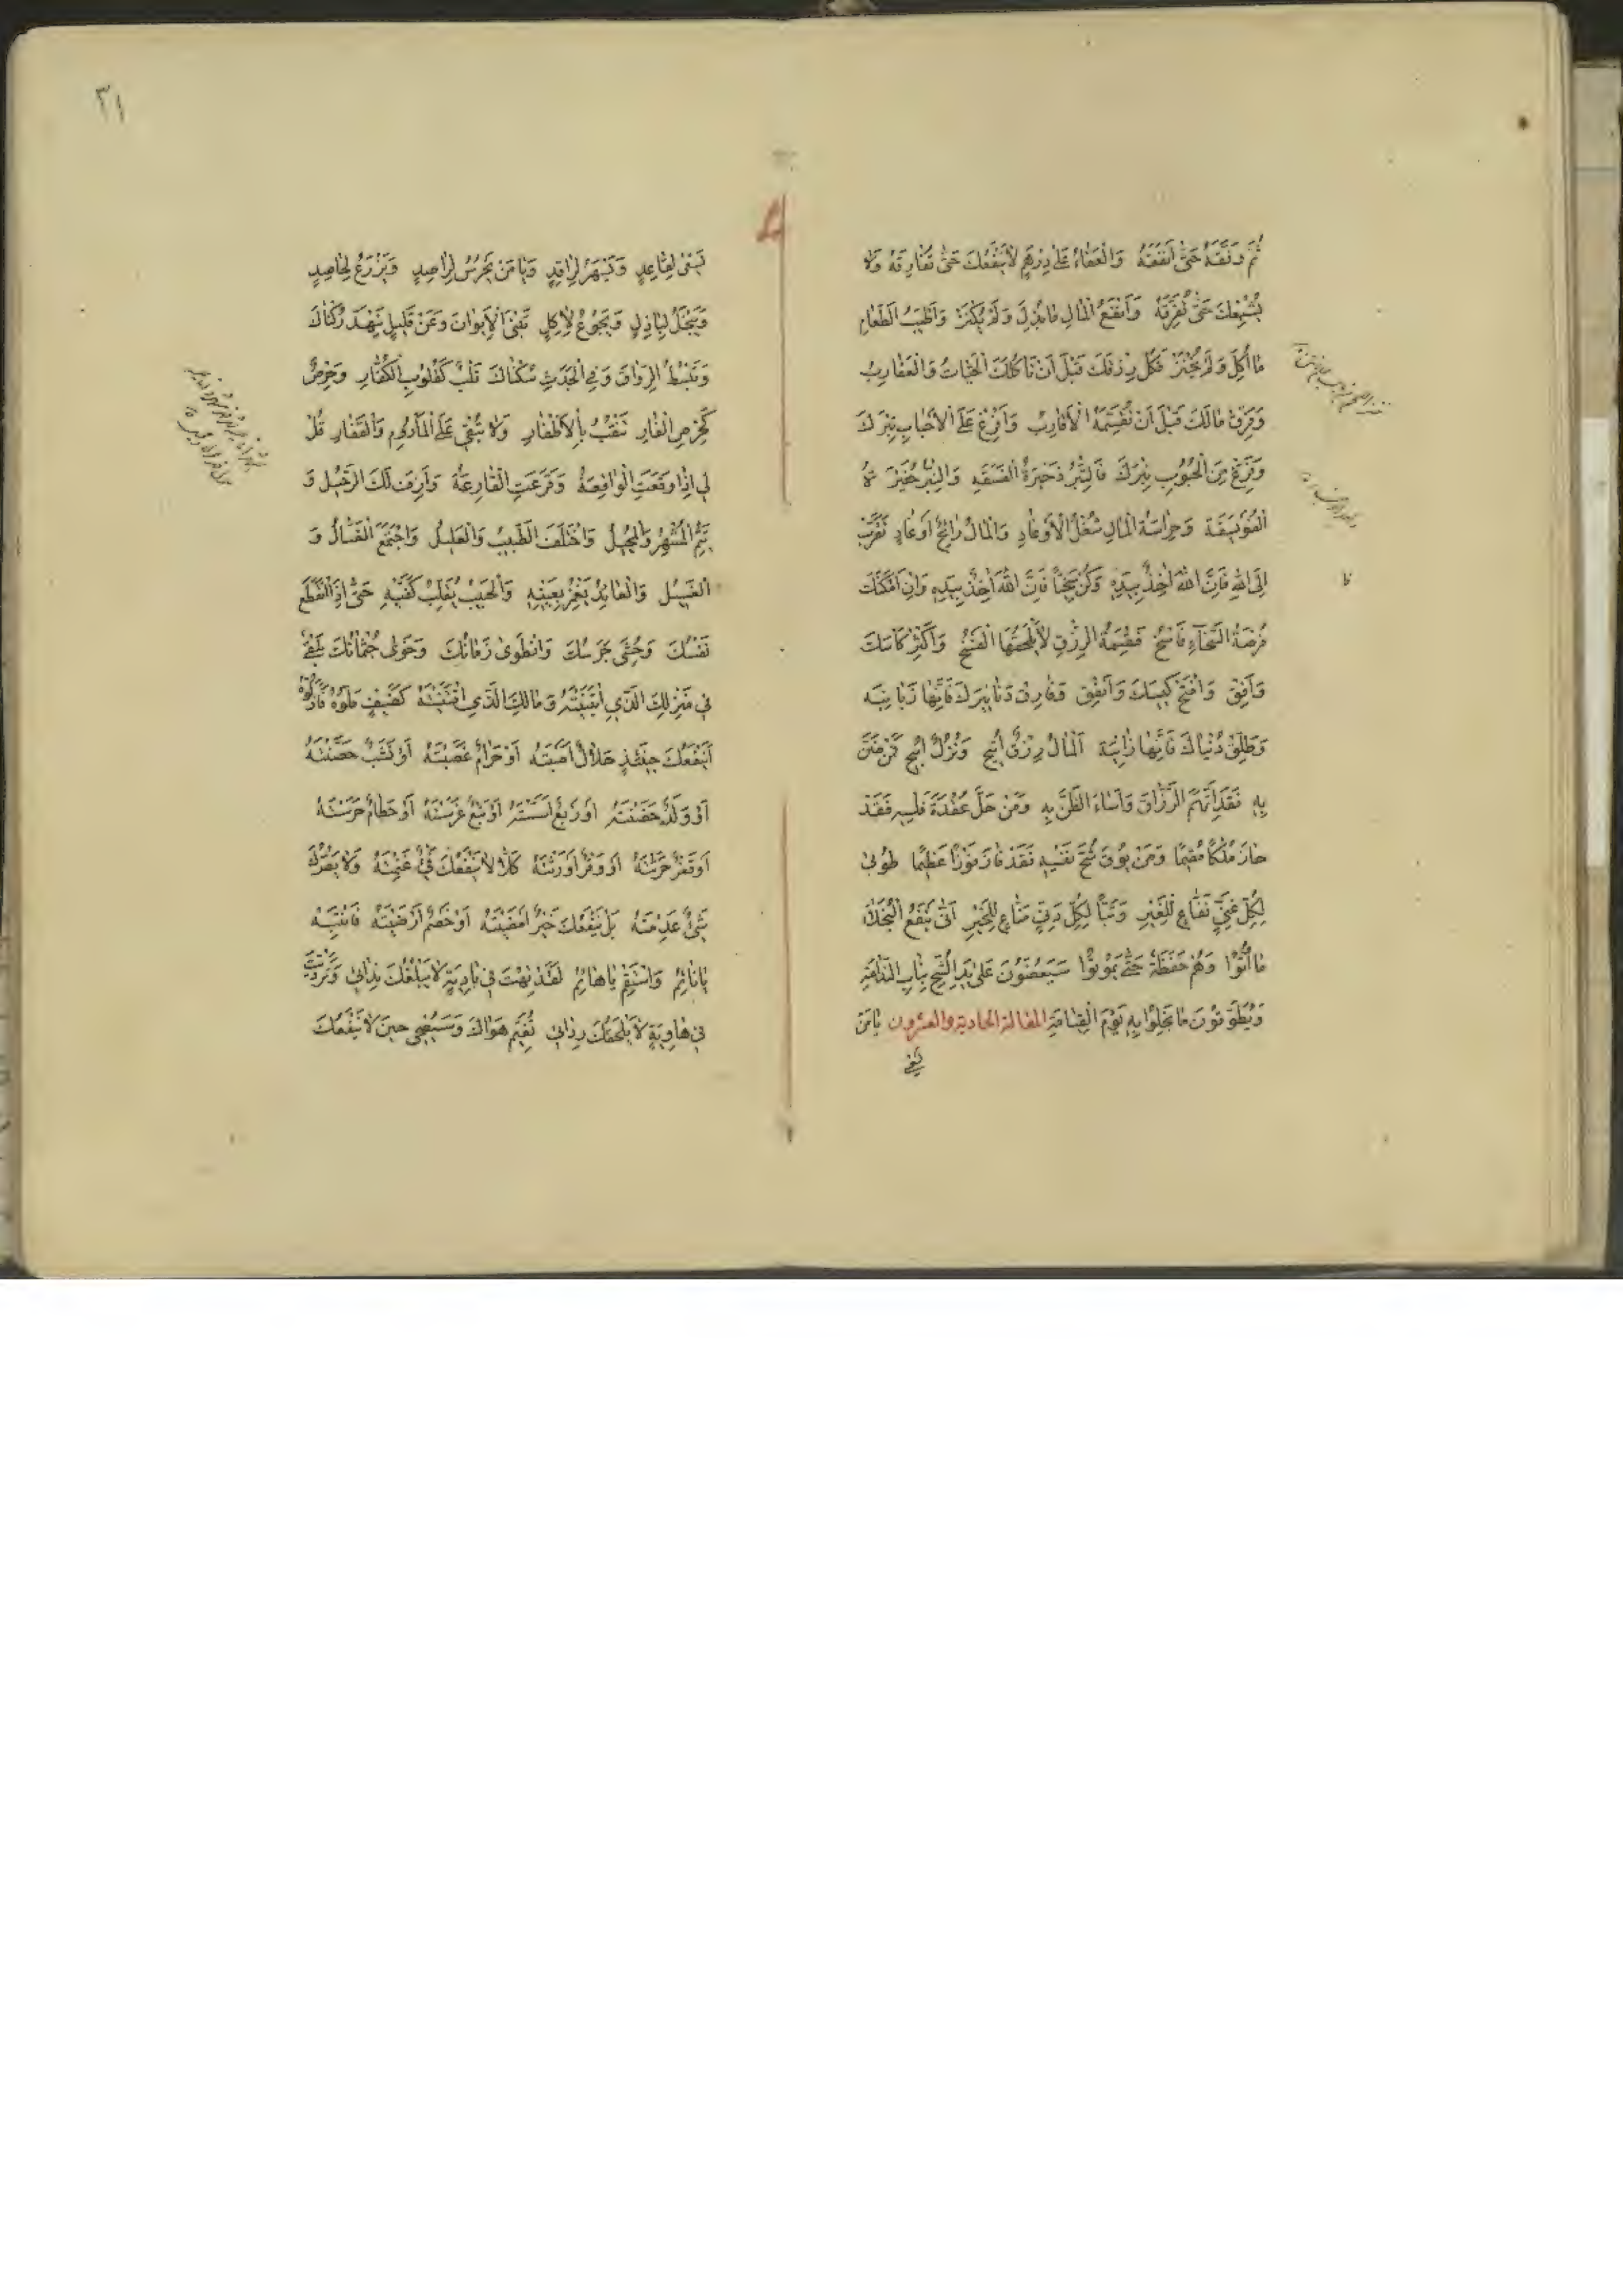 ثُمَّ وَثَّقَهُ حَتَّى اَنْفَقَهُ وَالْعَفَاءُ عَلَى دِرْهَمٍ لَا يَنْفَعُكَ حَتَّى تُفَارِقَهُ وَلَا
يُشْبِعُكَ حَتَّى تُفَرِّقَهُ وَاَنْفَعُ الْمَالِ مَا بُذِلَ وَلَمْ يُكْنَزْ وَاَطْيَبُ الطَّعَامِ
مَا اُكِلَ وَلَمْ يُخْبَزْ فَكُلْ رِزْقَكَ قَبْلَ اَنْ تَاْكُلَكَ الْحَيَّاتُ وَالْعَقَارِبُ
وَفَرِّقْ مَالَكَ قَبْلَ اَنْ تُقَسِّمَهُ الْاَقَارِبُ وَاَفْرِغْ عَلَى الْاَحْبَابِ تِبْرَكَ
وَفَرِّغْ مِنَ الْحُبُوبِ بِئْرَكَ فَالتِّبْرُ ذَخِيرَةُ الْفَسَقَةِ وَالْبِئْرُ
الْفُوَيْسِقَةِ وَحِرَاسَةُ الْمَالِ شُغْلُ الْاَوْغَادِ وَالْمَالُ رَائِحٌ اَوْ غَادٍ تَقَرَّبْ
اِلَى اللهِ فَاِنَّ اللهَ اٰخِذٌ بِيَدِهِ وَكُنْ سَخِيًّا فَاِنَّ اللهَ اٰخِذٌ بِيَدِهِ وَاِنْ اَمْكَنَكَ
فُرْصَةُ السَّخَاءِ فَاسْخُ فَقِسْمَةُ الرِّزْقِ لَا يَلْحَقُهَا الْفَسْخُ وَاكْسِرْ كَاسَكَ
وَاَفِقْ وَافْتَحْ كِيسَكَ وَاَنْفِقْ وَفَارِقْ دَنَانِيرَكَ فَاِنَّهَا زَبَانِيَة
وَطَلِّقْ دُنْيَاكَ فَاِنَّهَا زَانِيَة اَلْمَالُ رِزْقٌ اُتِيحَ وَنُزُلٌ اُبِيحَ فَمَنْ ضَنَّ
بِهِ فَقَدِ اتَّهَمَ الرَّزَّاقَ وَاَسَاءَ الظَّنَّ بِهِ وَمَنْ حَلَّ عُقْدَةَ فَقَدْ
حَازَ مُلْكًا مُقِيمًا وَمَنْ يُوقَ شُحَّ نَفْسِهِ فَقَدْ فَازَ فَوْزًا عَظِيمًا طُوبَى
لِكُلِّ غَنِيٍّ نَفَّاعٍ لِلْغَيْرِ وَتَبًّا لِكُلِّ دَنِيٍّ مَنَّاعٍ لِلْخَيْرِ اَنَّى يَنْفَعُ الْبُخَلَاءَ
مَا اُوتُوا وَهُمْ حَفَظَةٌ حَتَّى يَمُوتُوا سَيَعَضُّونَ عَلَى يَدِ الشُّحِّ بِنَابِ النَّدَامَةِ
وَيُطَوَّقُونَ مَا بَخِلُوا بِهِ يَوْمَ الْقِيَامَةِ المقالة الحادية والعشرون يَا مَنْ
٣١
يَسْعَى لِقَاعِدٍ وَيَسْهَرُ لِرَاقِدٍ وَيَا مَنْ يَحْرُسُ لِرَاصِدٍ وَيَزْرَعُ لِحَاصِدٍ
وَيَبْخَلُ لِبَاذِلٍ وَيَجُوعُ لِاٰكِلٍ تَبْنِي الْاِيوَانَ وَعَنْ قَلِيلٍ يَنْهَدُّ رُكْنَاكَ
وَتَبْسُطُ الرِّوَاقَ وَفِي الْجَدَثِ سُكْنَاكَ قَلْبٌ كَقُلُوبِ الْكُفَّارِ وَحِرْصٌ
كَحِرْصِ الْفَارِ تَنْقُبُ بِالْاَظْفَارِ وَلَا تُبْقِي عَلَى الْمَأْدُومِ وَالْقَفَارِ قُلْ
لِي اِذَا وَقَعَتِ الْوَاقِعَةُ وَقَرَعَتِ الْقَارِعَةُ وَاَزِفَ لَكَ الرَّحِيلُ وَ
وَاخْتَلَفَ الطَّبِيبُ وَالْعَلِيلُ وَاجْتَمَعَ الْغَسَّالُ وَ
الْغَسِيلُ وَالْعَائِدُ يَغْمِزُ بِعَيْنِهِ وَالْحَبِيبُ يُقَلِّبُ كَفَّيْهِ حَتَّى اِذَا انْقَطَعَ
نَفَسُكَ وَخُفِيَ جَرْسُكَ وَانْطَوَى زَمَانُكَ وَحَوَى جُثْمَانُكَ
فِي مَنْزِلِكَ الَّذِي ابْتَنَيْتَهُ وَمَالِكَ الَّذِي اقْتَنَيْتَهُ كَضَيْفٍ مَلُّوهُ
اَيَنْفَعُكَ حِينَئِذٍ حَلَالٌ اَصَبْتَهُ اَوْ حَرَامٌ غَصَبْتَهُ اَوْ نَشَبٌ حَصَّنْتَهُ
اَوْ وَلَدٌ حَضَنْتَهُ اَوْ رَبْعٌ اَسَّسْتَهُ اَوْ نَبْعٌ غَرَسْتَهُ اَوْ حُطَامٌ حَرَسْتَهُ
اَوْ قَفْرٌ حَرَثْتَهُ اَوْ وَفْرٌ اُورِثْتَهُ كَلَّا لَا يَنْفَعُكَ شَيْءٌ غَنِمْتَهُ وَلَا يَضُرُّكَ
شَيْءٌ عَدِمْتَهُ بَلْ يَنْفَعُكَ خَيْرٌ اَمْضَيْتَهُ اَوْ خَصْمٌ اَرْضَيْتَهُ فَانْتَبِهْ
يَا نَائِمُ وَاسْتَقِمْ يَا هَائِمُ لَقَدْ تِهْتَ فِي بَادِيَةٍ لَا يَبْلُغُكَ نِدَائِي وَتَرَدَّيْتَ
فِي هَاوِيَةٍ لَا يَلْحَقُكَ رِدَائِي تُقِيمُ هَوَاكَ وَسَيُضْحِي حِينَ لَا يَنْفَعُكَ